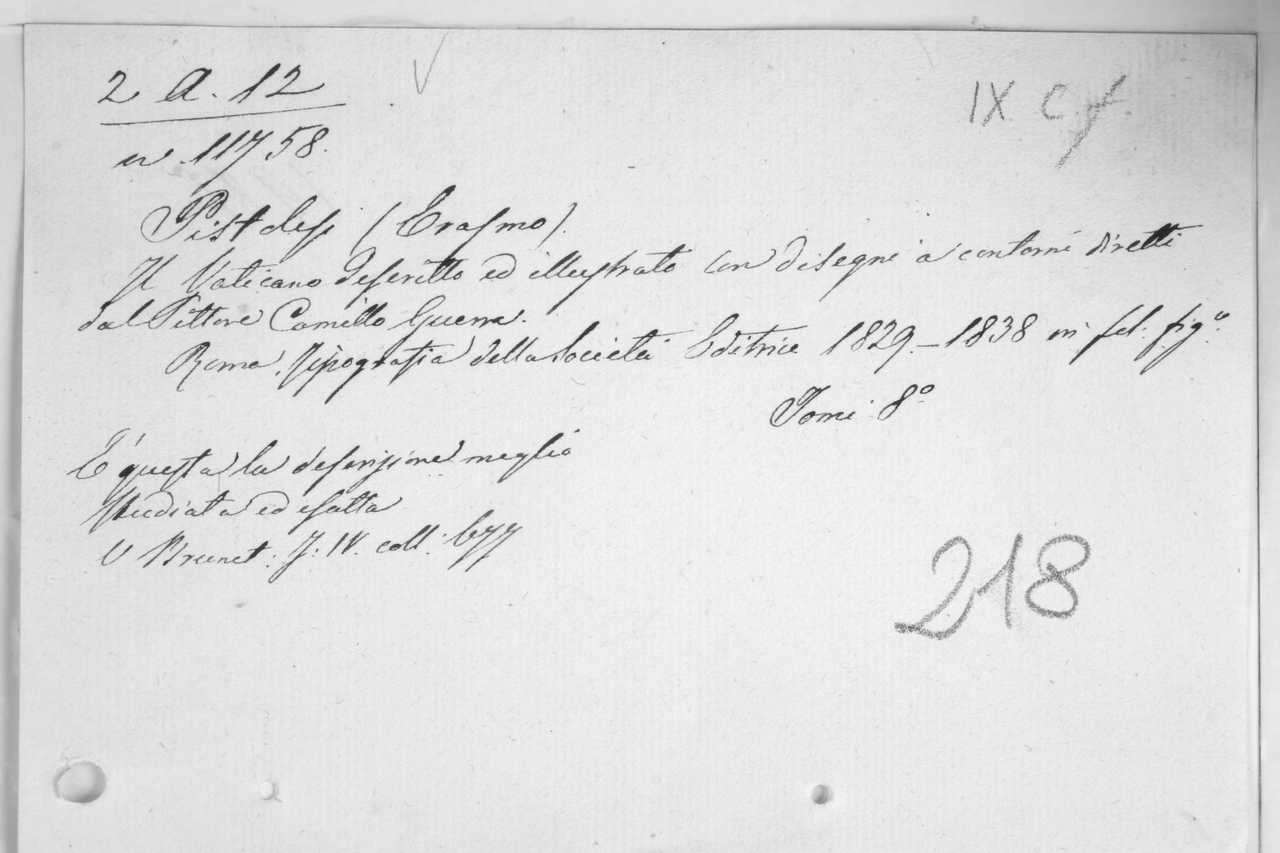 2 A. 12
IX C. f.
n. 11758.
Pistolesi (Erasmo).
Il Vaticano descritto ed illustrato con disegni a contorni diretti
dal Pittore Camillo Guerra.
Roma, Tipografia della Società Editrice 1829.-1838 in fol. fig.º
Tomi 8º
È questa la descrizione meglio
studiata ed esatta
V Brunet: T: IV. coll: 677
218